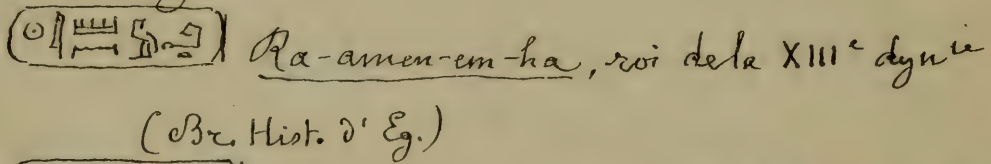 Ra-amen-em-ha, roi de la XIIIe dynie
(Br. Hist. d'Eg.)